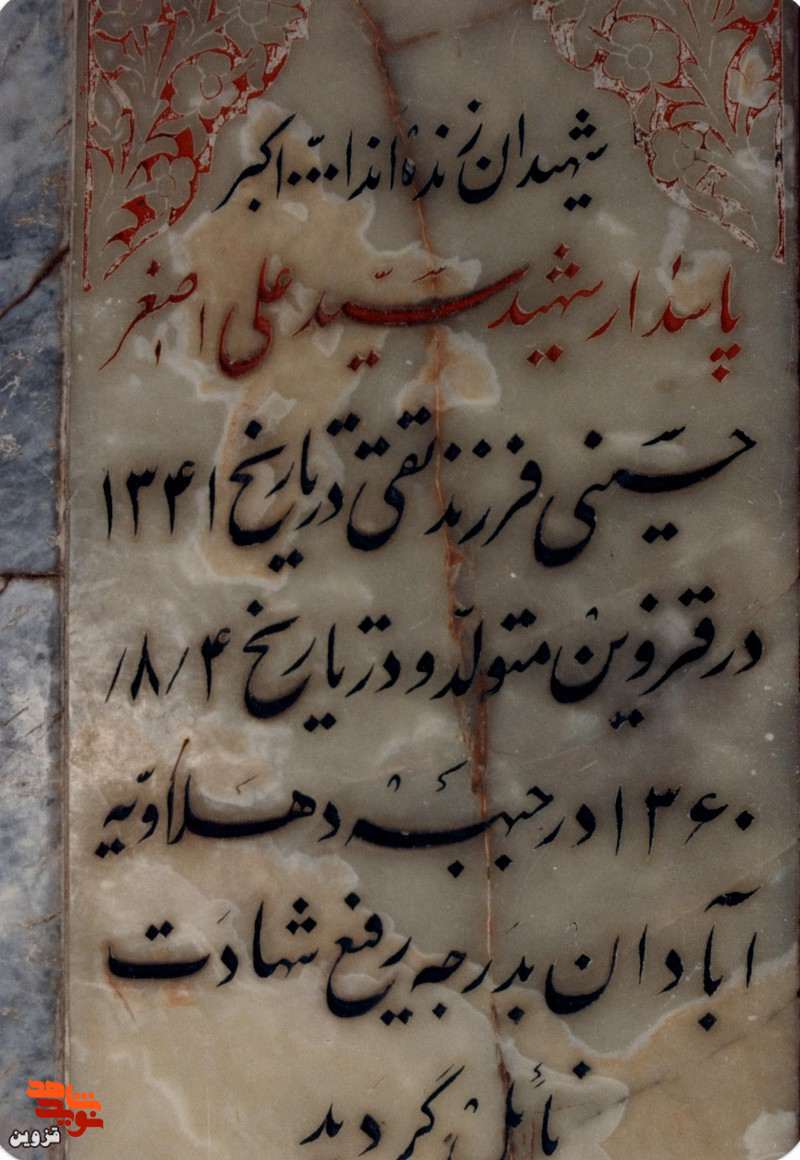 شهیدان زنده اند ا... اکبر
پاسدار شهید سیّد علی اصغر
حسینی فرزند تقی در تاریخ ۱۳۴۱
در قزوین متولّد و در تاریخ ۸/۴/
۱۳۶۰ در جبهه دهلاویه
آبادان بدرجه رفیع شهادت
نائل گردید
نوید شاهد
قزوین